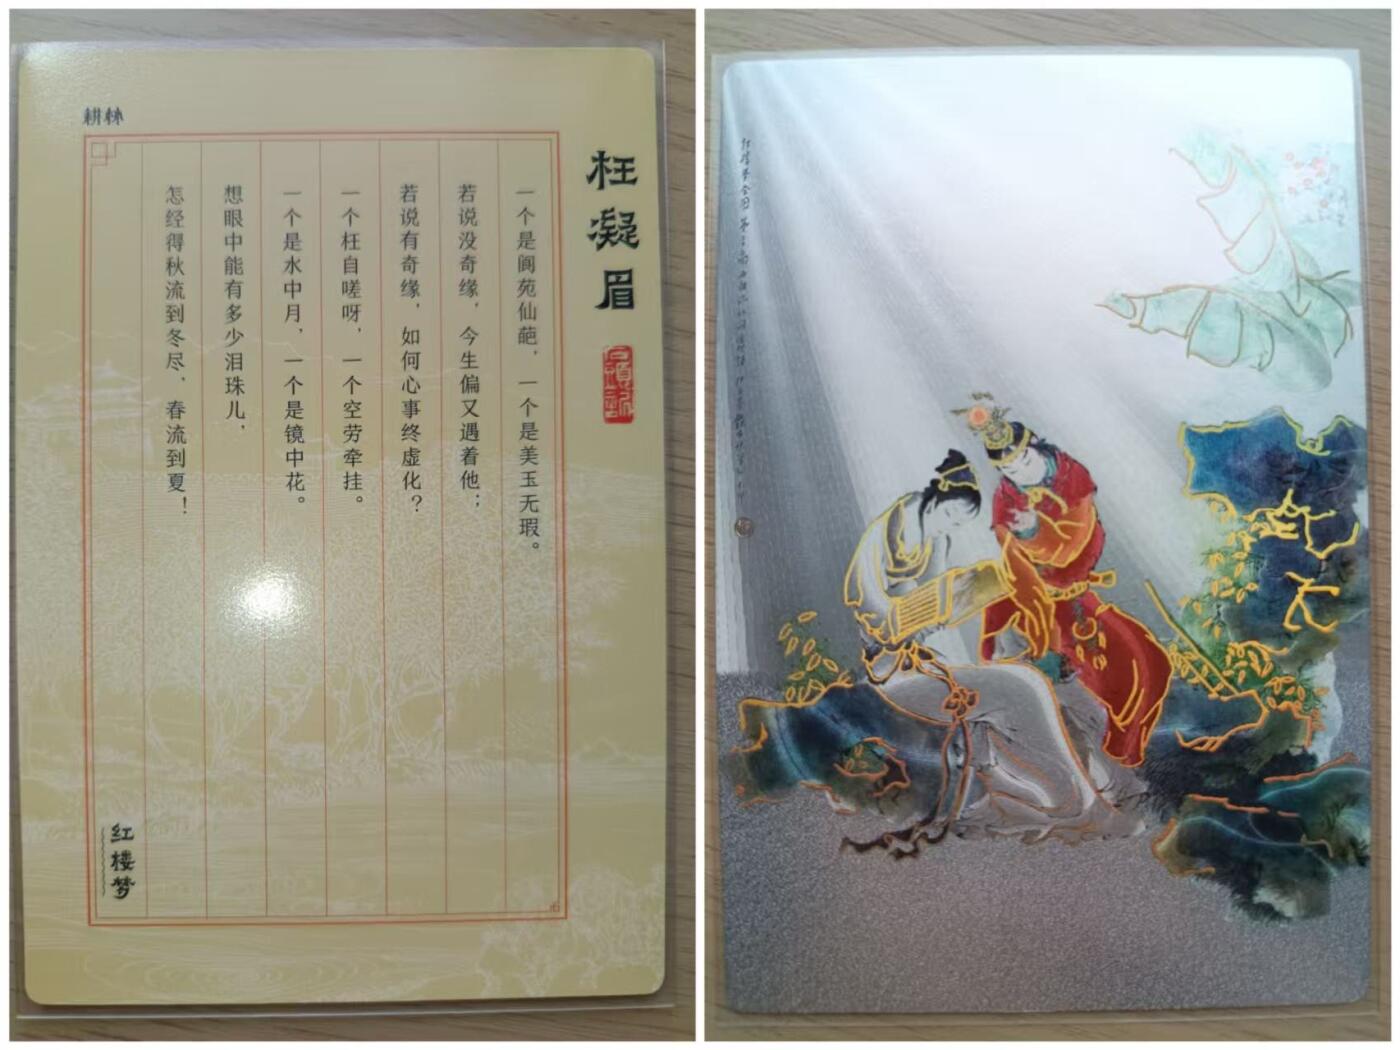 耕林
枉凝眉
石頭記
一个是阆苑仙葩，一个是美玉无瑕。
若说没奇缘，今生偏又遇着他；
若说有奇缘，如何心事终虚化？
一个枉自嗟呀，一个空劳牵挂。
一个是水中月，一个是镜中花。
想眼中能有多少泪珠儿，
怎经得秋流到冬尽，春流到夏！
红楼梦